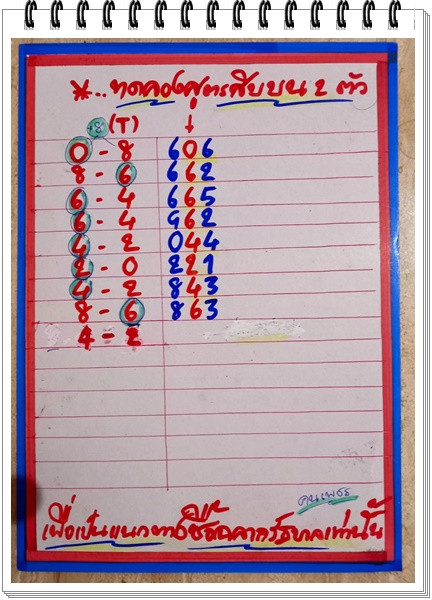 *..ทดลองสูตรสิบบน 2 ตัว
8 (T) ↓
0 - 8 606
8 - 6 662
6 - 4 665
6 - 4 962
4 - 2 044
2 - 0 221
4 - 2 843
8 - 6 863
4 - 2
คนเพชร
เพื่อเป็นแนวทางซื้อสลากรัฐบาลเท่านั้น